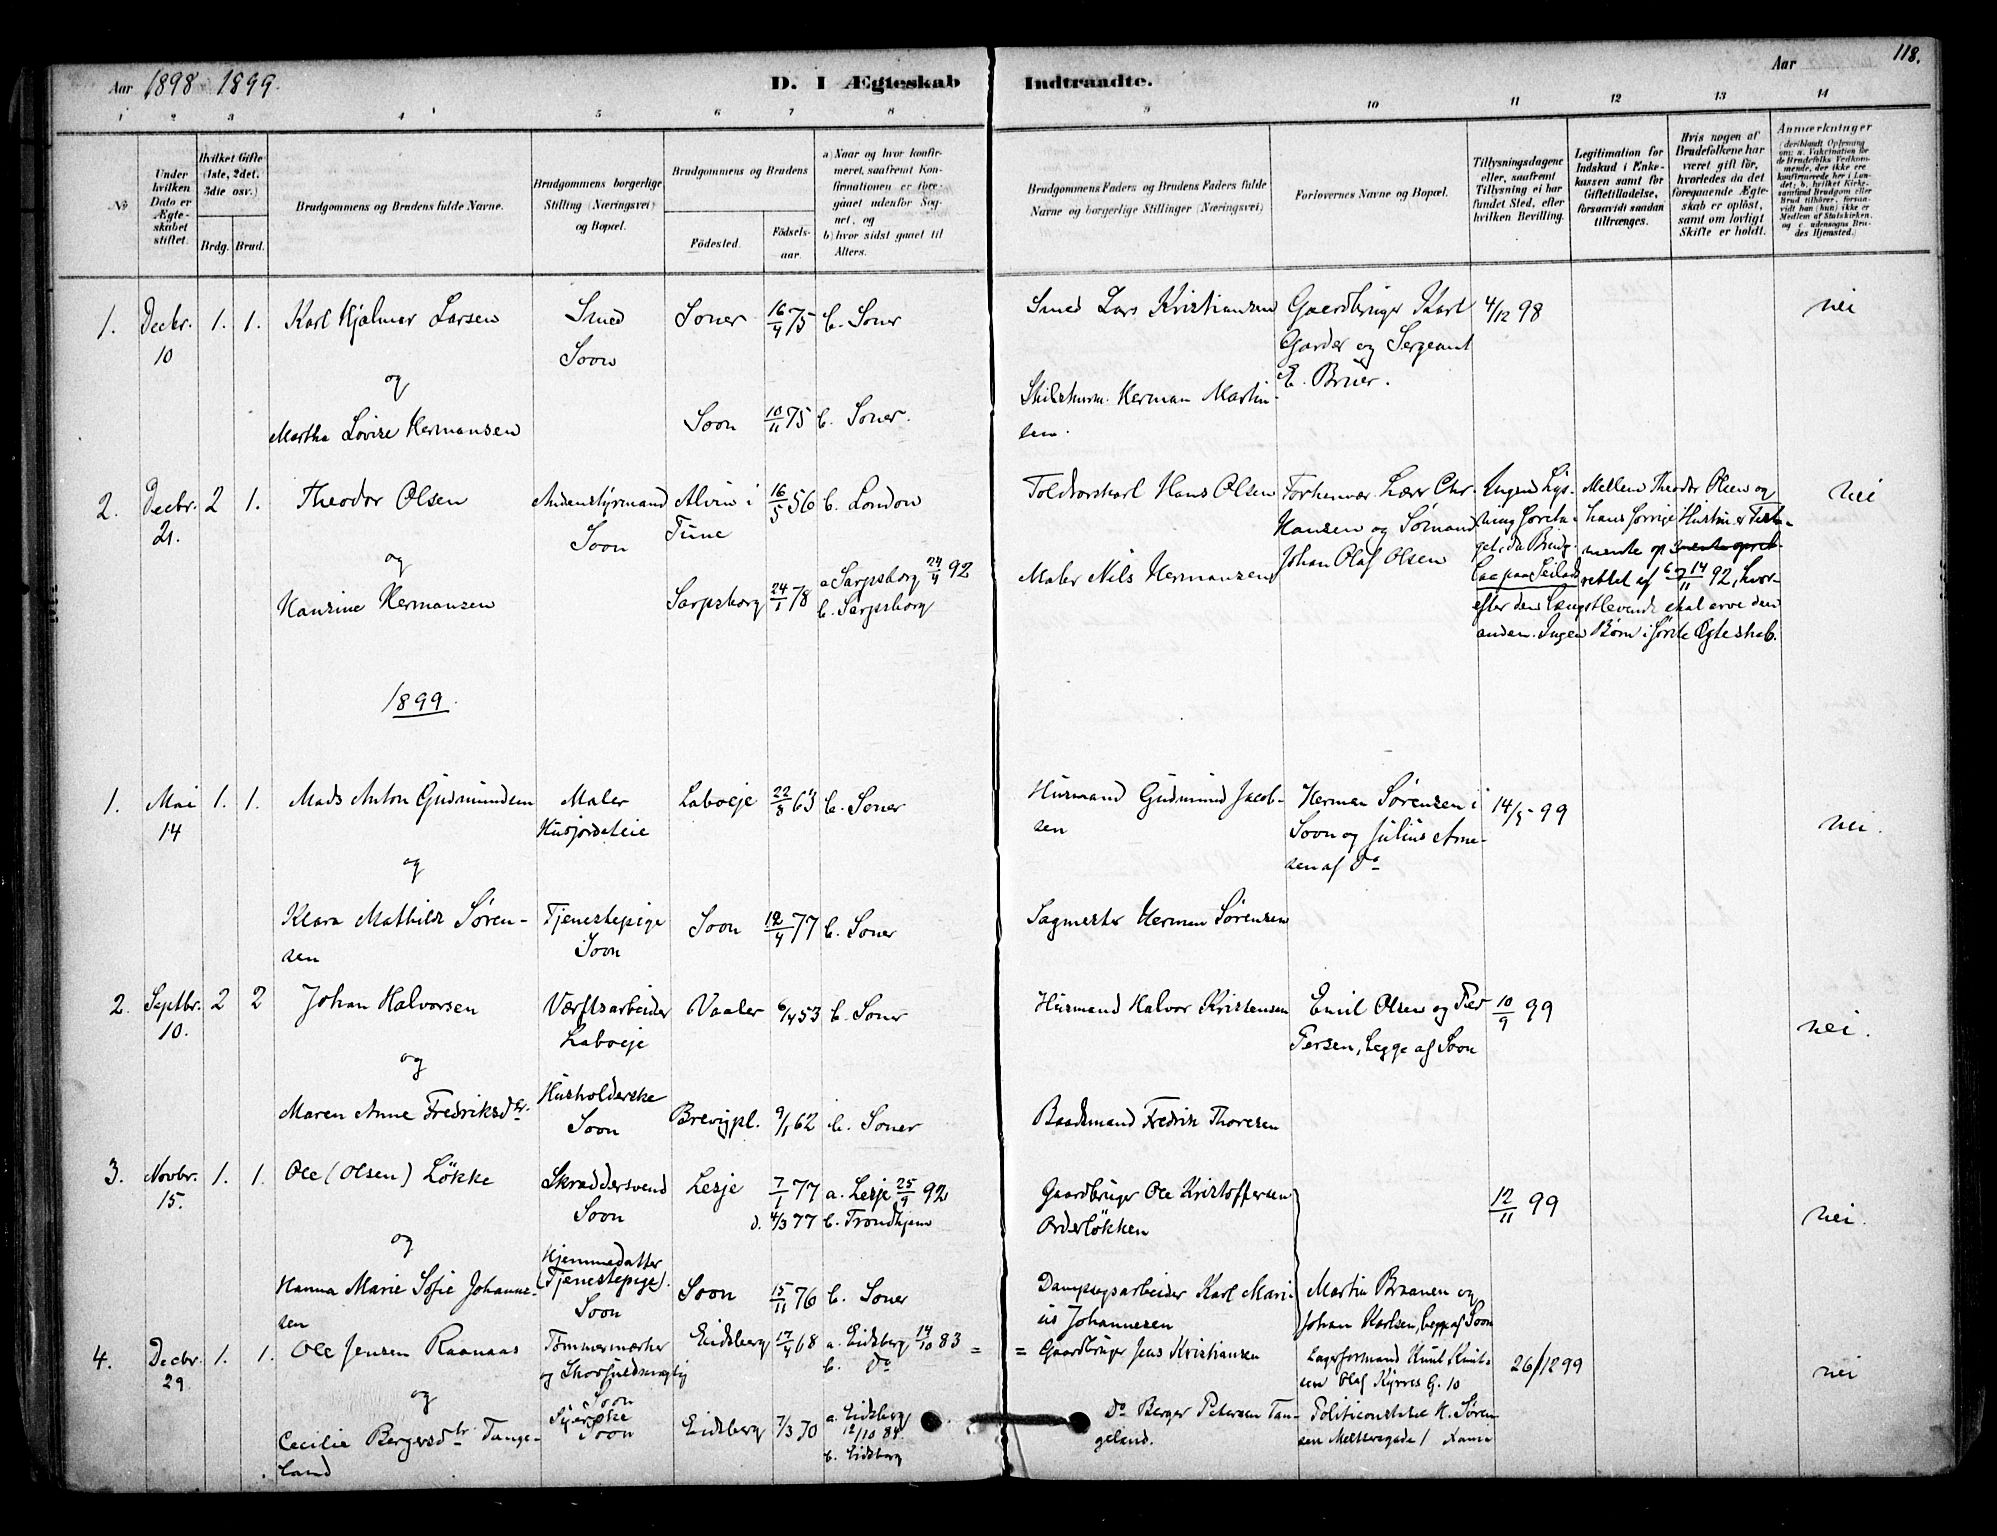 Aar 1898-1899.
D. I Ægteskab Indtraadte.
Aar
118.
1 2 3 4 5 6 7 8 9 10 11 12 13 14
No
Under hvilken Dato er Ægteskabet stiftet.
Hvilket Gifte (1ste, 2det, 3die osv.)
Brdg. Brud.
Brudgommens og Brudens fulde Navne.
Brudgommens borgerlige Stilling (Næringsvei) og Bopæl.
Brudgommens og Brudens
Födested.
Födsels-aar.
a) Naar og hvor konfirmeret, saafremt Konfirmationen er foregaaet udenfor Sognet, og
b) hvor sidst gaaet til Alters.
Brudgommens Faders og Brudens Faders fulde Navne og borgerlige Stillinger (Næringsvei)
Forlovernes Navne og Bopæl.
Tillysningsdagene eller, saafremt Tillysning ei har fundet Sted, efter hvilken Bevilling.
Legitimation for Indskud i Enkekassen samt for Giftetilladelse, forsaavidt saadan tiltrænges.
Hvis nogen af Brudefolkene har været gift för, hvorledes da det foregaaende Ægteskab er oplöst, samt om lovligt Skifte er holdt.
Anmærkninger
1. Decbr. 10 1. 1. Karl Hjalmar Larsen
Smed Soon
Soner 16/4 75 b. Soner
Smed Lars Kristiansen
Gaardbruger Karl Garder og Sergeant E. Bruer.
4/12 98
nei
og
Martha Lovise Hermansen
Soon 10/11 75 b. Soner.
Herman Martinsen.
2. Decbr. 21. 2 1. Theodor Olsen
Andenstyrmand Soon
Alvim i Tune 16/5 56 b. London
Toldvorskarl Hans Olsen
Forhenvær. Lærer Chr. Hansen og Sømand Johan Olaf Olsen
Ingen Lysning foreta-
Mellem Theodor Olsen og hans forrige Hustru er Testamente op-
rettet af 14/11 92, hvor-
efter den Længstlevende skal arve den
anden. Ingen Børn i første Ægteskab.
nei
og
Hansine Hermansen
Sarpsborg 24/1 78 a Sarpsborg 24/4 92
b. Sarpsborg
Maler Nils Hermansen
1899.
1. Mai 14 1. 1. Mads Anton Gudmundsen
Maler Husjordeteie
Laboeje 22/8 63 b. Soner
Husmand Gudmund Jacobsen
Herman Sørensen i Soon og Julius Arnesen af Do
14/5 99
nei.
og
Klara Mathilde Sørensen
Tjenestepige Soon
Soon 12/4 77 b. Soner
Sagmester Herman Sørensen
2. Septbr. 10. 2 2 Johan Halvorsen
Værftsarbeider Laboeje
Vaaler 6/4 53 b. Soner
Husmand Halvor Kristensen
Emil Olsen og Per Persen, begge af Soon
10/9 99
nei.
og
Maren Anne Fredriksdtr.
Husholderske Soon
Brevigpl. 9/1 62 b. Soner
Baadsmand Fredrik Thoresen
3. Novbr. 15. 1. 1. Ole (Olsen) Løkke
Skræddersvend Soon
Lesje 7/1 77 a. Lesje 25/9 92
d. 4/3 77 b. Trondhjem
Gaardbruger Ole Kristoffersen
12/11 99
nei.
og
Hanna Marie Sofie Johannesen
Hjemmedatter (Tjenestepige). Soon
Soon 15/11 76 b. Soner
Dampsagsarbeider Karl Marius Johannesen
Martin Braanen og Johan Karlsen, begge af Soon
4. Decbr. 29 1. 1. Ole Jensen Raanaas
Tømmermærker og Soon
Eidsberg 17/4 68 a. Eidsberg 14/10 83
b. Do
Gaardbruger Jens Kristiansen
Lagerformand Knut Knutsen Olaf Kyrres G. 10
26/12 99
nei
og
Cecilie Bergersdtr Tangeland
Syerske Soon
Eidsberg 7/3 70 a. Eidsberg 12/10 84.
b. Eidsberg
Do Berger Petersen Tangeland.
Politiconstabel K. Sørensen